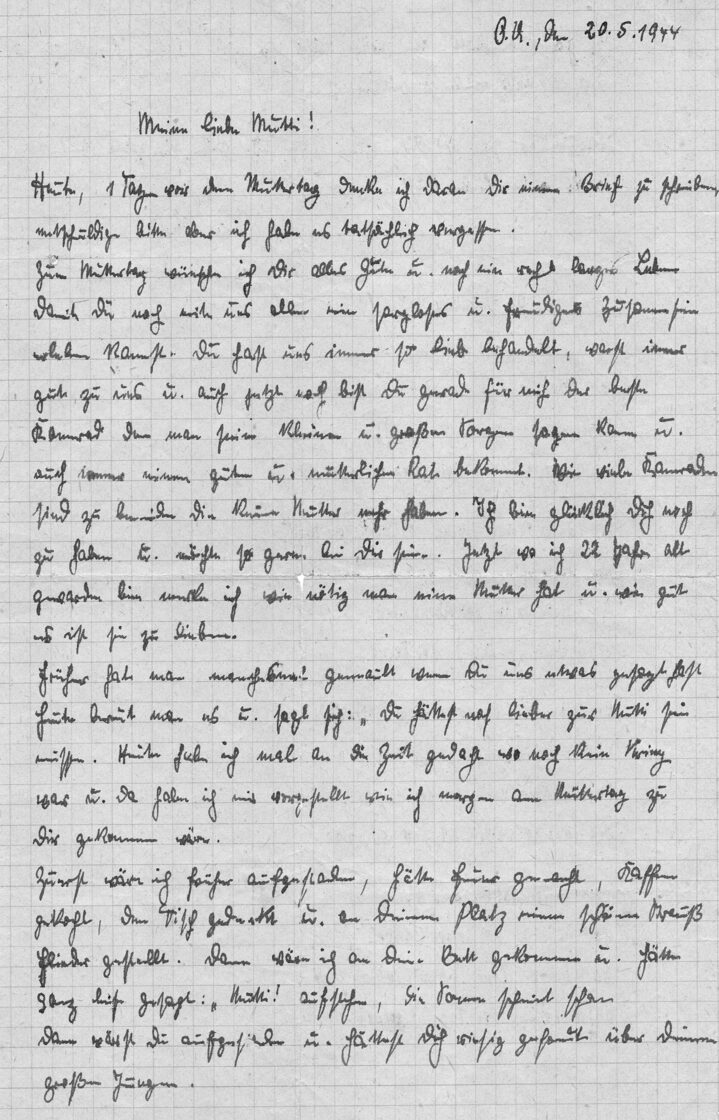 O.U., den 20.5.1944
Meine liebe Mutti!
Heute, 1 Tage vor dem Muttertag denke ich daran dir einen Brief zu schreiben,
entschuldige bitte aber ich habe es tatsächlich vergessen.
Zum Muttertag wünsche ich Dir alles Gute u. noch ein recht langes Leben
damit Du noch mit uns allen ein sorgloses u. freudiges Zusamensein
erleben kannst. Du hast uns immer so lieb behandelt, warst immer
gut zu uns u. auch jetzt noch bist Du gerade für mich der beste
Kamerad dem man seine kleinen u. großen Sorgen sagen kann u.
auch immer einen guten u. mutterlichen Rat bekommt. Wie viele Kameraden
sind zu die keine Mutter mehr haben. Ich bin glücklich Dich noch
zu haben u. möchte so gern bei Dir sein. Jetzt wo ich 22 Jahre alt
geworden bin merke ich wie nötig man eine Mutter hat u. wie gut
es ist sie zu lieben.
Früher hat man manchesmal gemault wenn Du uns etwas gesagt hast
heute bereut man es u. sagt sich: „Du hättest noch lieber zur Mutti sein
müssen. Heute habe ich mal an die Zeit gedacht wo noch kein Krieg
war u. da habe ich mir vorgestellt wie ich morgen am Muttertag zu
Dir gekommen wäre.
Zuerst wäre ich früher aufgestanden, hätte Feuer gemacht, Kaffee
gekocht, den Tisch gedeckt u. an Deinem Platz einen schönen Strauß
Flieder gestellt. Dann wäre ich an Dein Bett gekommen u. hätte
ganz leise gesagt: „Mutti! aufstehen, die Sonne scheint schon
dann wärst Du aufgestanden u. hättest Dich riesig gefreut über Deinen
großen Jungen.